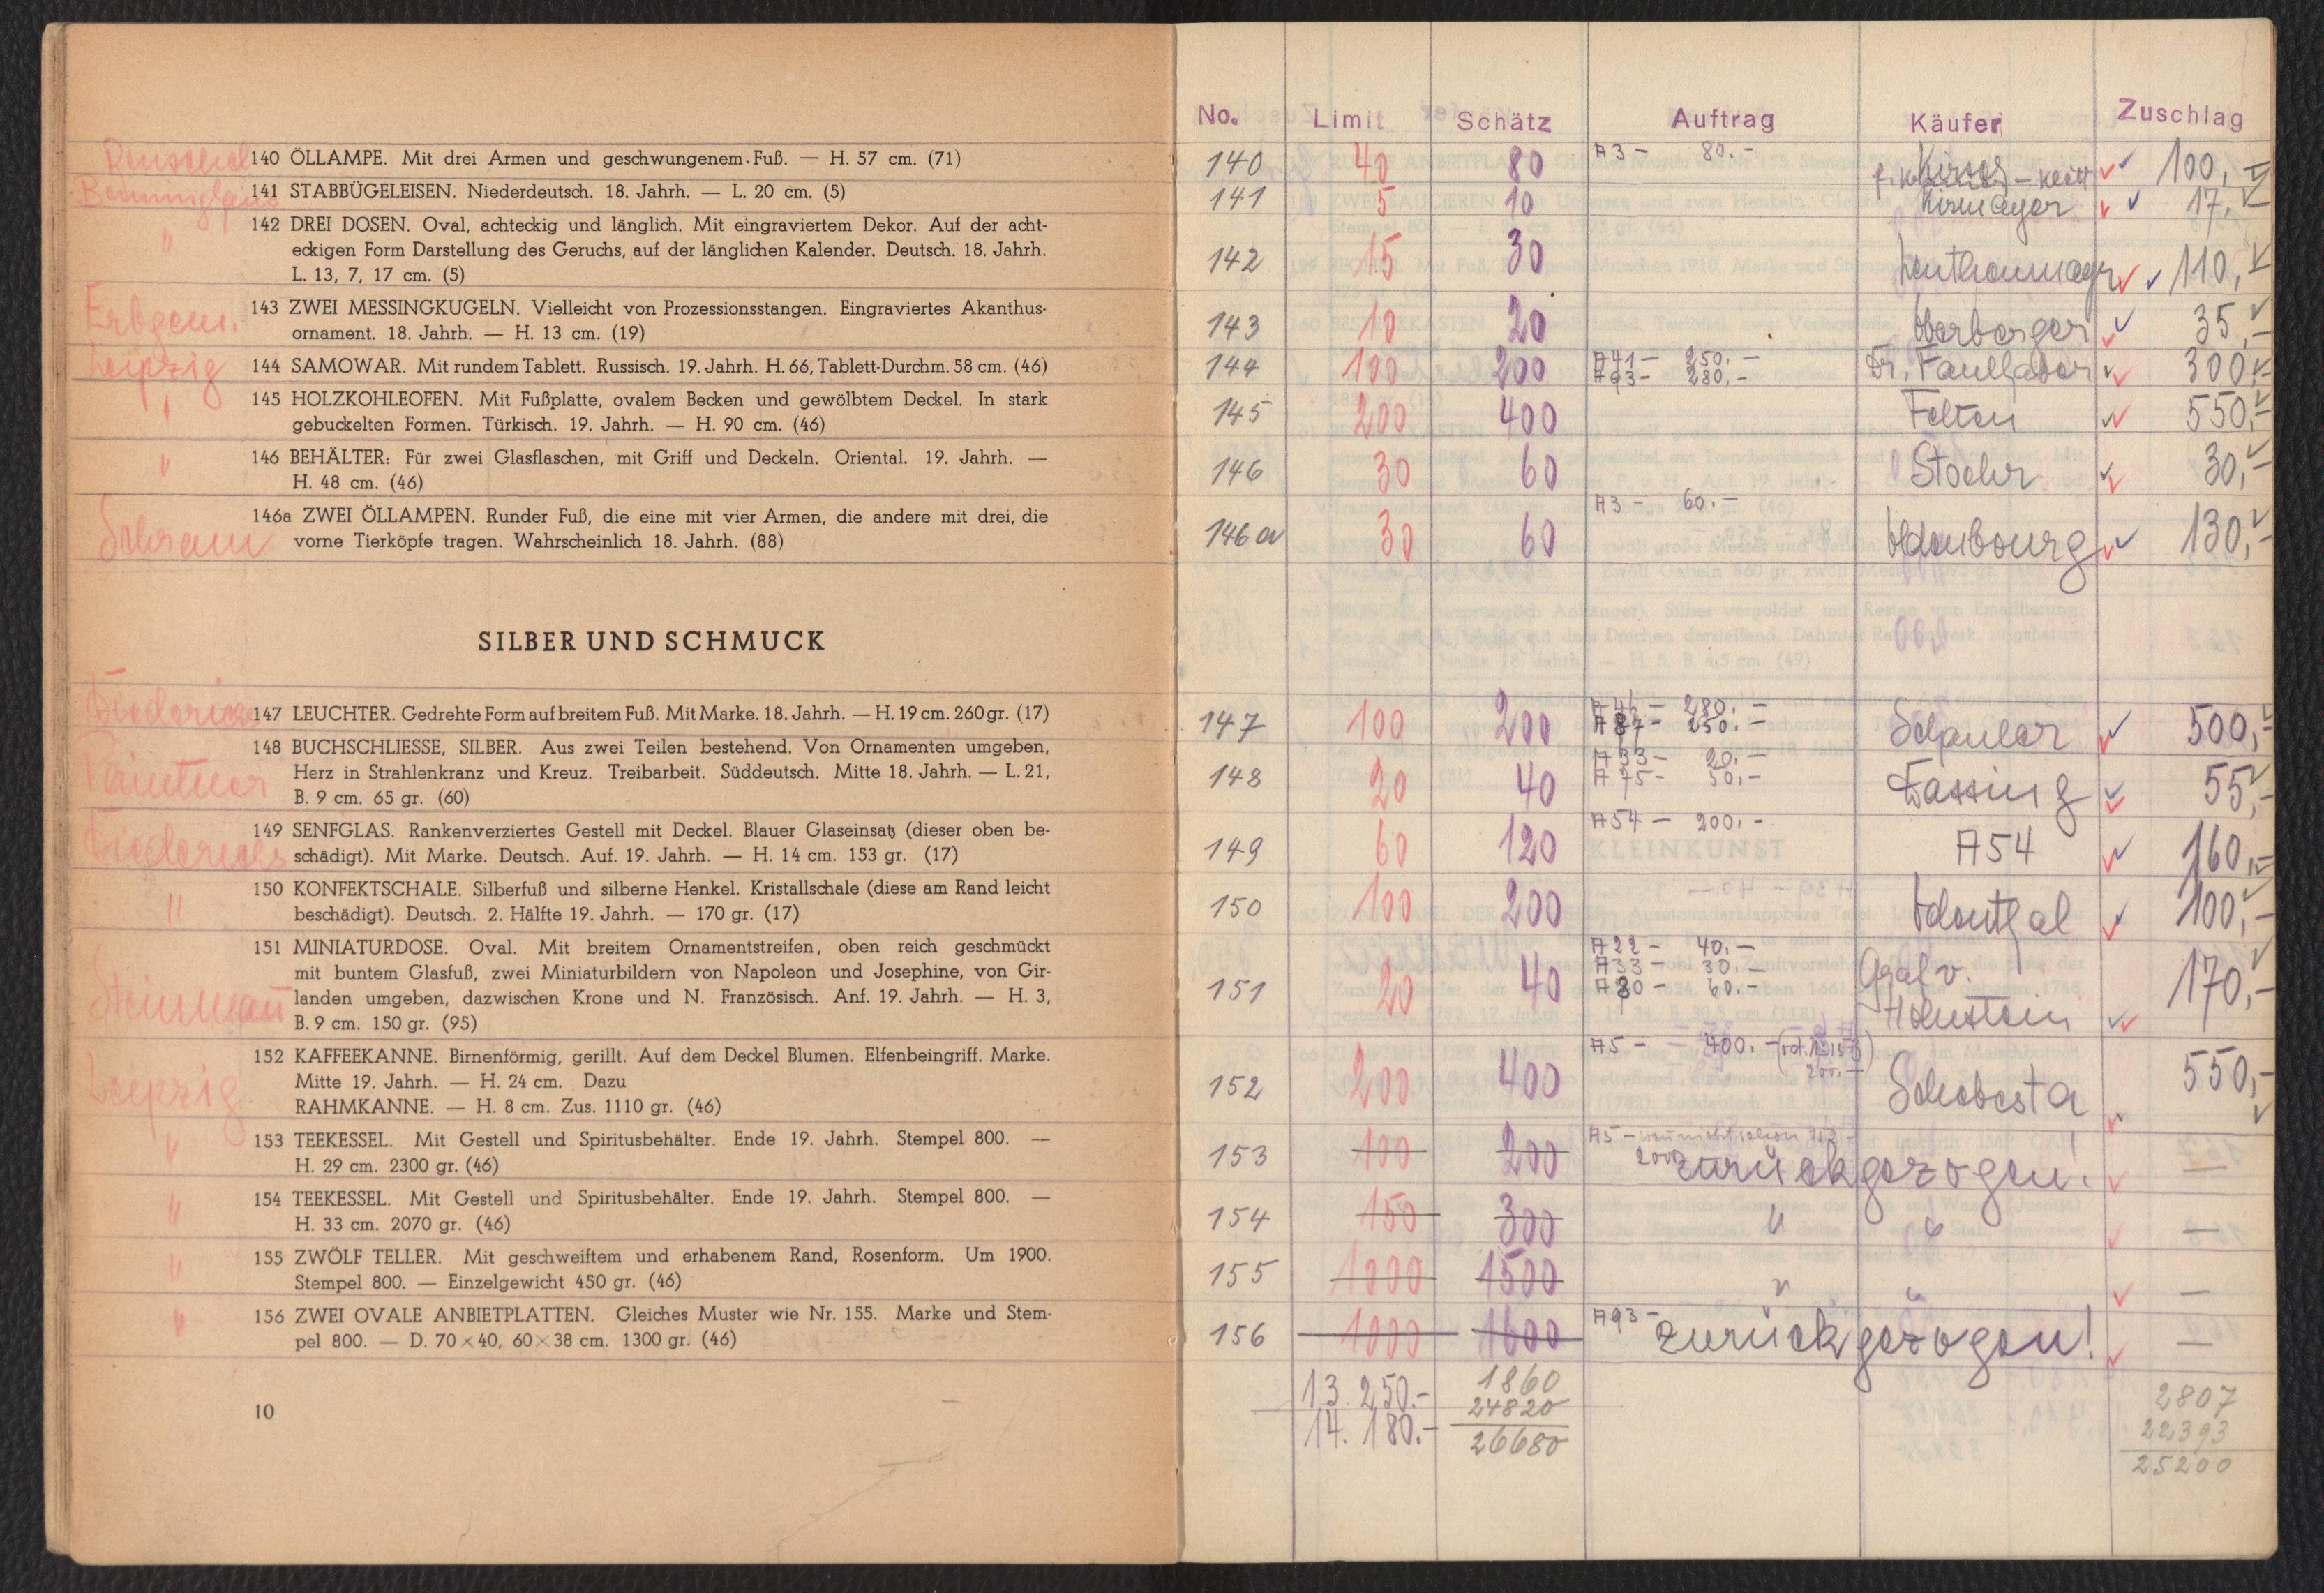 140 ÖLLAMPE. Mit drei Armen und geschwungenem Fuß. — H. 57 cm. (71)
141 STABBÜGELEISEN. Niederdeutsch. 18. Jahrh. — L. 20 cm. (5)
"
142 DREI DOSEN. Oval, achteckig und länglich. Mit eingraviertem Dekor. Auf der acht-
eckigen Form Darstellung des Geruchs, auf der länglichen Kalender. Deutsch. 18. Jahrh.
L. 13, 7, 17 cm. (5)
Erbgem.
143 ZWEI MESSINGKUGELN. Vielleicht von Prozessionsstangen. Eingraviertes Akanthus-
ornament. 18. Jahrh. — H. 13 cm. (19)
Leipzig
144 SAMOWAR. Mit rundem Tablett. Russisch. 19. Jahrh. H. 66, Tablett-Durchm. 58 cm. (46)
"
145 HOLZKOHLEOFEN. Mit Fußplatte, ovalem Becken und gewölbtem Deckel. In stark
gebuckelten Formen. Türkisch. 19. Jahrh. — H. 90 cm. (46)
"
146 BEHÄLTER: Für zwei Glasflaschen, mit Griff und Deckeln. Oriental. 19. Jahrh. —
H. 48 cm. (46)
Schram
146a ZWEI ÖLLAMPEN. Runder Fuß, die eine mit vier Armen, die andere mit drei, die
vorne Tierköpfe tragen. Wahrscheinlich 18. Jahrh. (88)
SILBER UND SCHMUCK
Diederichs
147 LEUCHTER. Gedrehte Form auf breitem Fuß. Mit Marke. 18. Jahrh. — H. 19 cm. 260 gr. (17)
Paintner
148 BUCHSCHLIESSE, SILBER. Aus zwei Teilen bestehend. Von Ornamenten umgeben,
Herz in Strahlenkranz und Kreuz. Treibarbeit. Süddeutsch. Mitte 18. Jahrh. — L. 21,
B. 9 cm. 65 gr. (60)
Diederichs
149 SENFGLAS. Rankenverziertes Gestell mit Deckel. Blauer Glaseinsatz (dieser oben be-
schädigt). Mit Marke. Deutsch. Auf. 19. Jahrh. — H. 14 cm. 153 gr. (17)
"
150 KONFEKTSCHALE. Silberfuß und silberne Henkel. Kristallschale (diese am Rand leicht
beschädigt). Deutsch. 2. Hälfte 19. Jahrh. — 170 gr. (17)
Steinmau
151 MINIATURDOSE. Oval. Mit breitem Ornamentstreifen, oben reich geschmückt
mit buntem Glasfuß, zwei Miniaturbildern von Napoleon und Josephine, von Gir-
landen umgeben, dazwischen Krone und N. Französisch. Anf. 19. Jahrh. — H. 3,
B. 9 cm. 150 gr. (95)
Leipzig
152 KAFFEEKANNE. Birnenförmig, gerillt. Auf dem Deckel Blumen. Elfenbeingriff. Marke.
Mitte 19. Jahrh. — H. 24 cm. Dazu
RAHMKANNE. — H. 8 cm. Zus. 1110 gr. (46)
"
153 TEEKESSEL. Mit Gestell und Spiritusbehälter. Ende 19. Jahrh. Stempel 800. —
H. 29 cm. 2300 gr. (46)
"
154 TEEKESSEL. Mit Gestell und Spiritusbehälter. Ende 19. Jahrh. Stempel 800. —
H. 33 cm. 2070 gr. (46)
"
155 ZWÖLF TELLER. Mit geschweiftem und erhabenem Rand, Rosenform. Um 1900.
Stempel 800. — Einzelgewicht 450 gr. (46)
"
156 ZWEI OVALE ANBIETPLATTEN. Gleiches Muster wie Nr. 155. Marke und Stem-
pel 800. — D. 70×40, 60×38 cm. 1300 gr. (46)
10
No. Limit Schätz Auftrag Käufer Zuschlag
140 40 80 A3 – 80.– 100,–
141 5 10 Kirmayer 17,–
142 15 30 110,–
143 10 20 Oberberger 35,–
144 100 200 A41 – 250.– Dr. Faullaber 300,–
A93 – 280,–
145 200 400 Felten 550,–
146 30 60 Stoehr 30,–
A3 – 60.–
146a 30 60 Oldenbourg 130,–
147 100 200 A46 – 280.– 500,–
A87 – 250.–
148 20 40 A33 – 20.– Fassing 55,–
A75 – 50,–
A54 – 200,–
149 60 120 A54 160,–
150 100 200 Odental 100,–
151 20 40 A22 – 40,– Graf v. 170,–
A33 – 30.–
A80 – 60.– Holnstein
A5 – 400.–
200,–
152 200 400 Schobesta 550,–
153 100 200 A5 – zurückgezogen! —
154 150 300 " " —
155 1000 1500 " " —
156 1000 1600 A93 – zurückgezogen! —
13.250.– 1860 2807
14.180.– 24820 22393
26680 25200